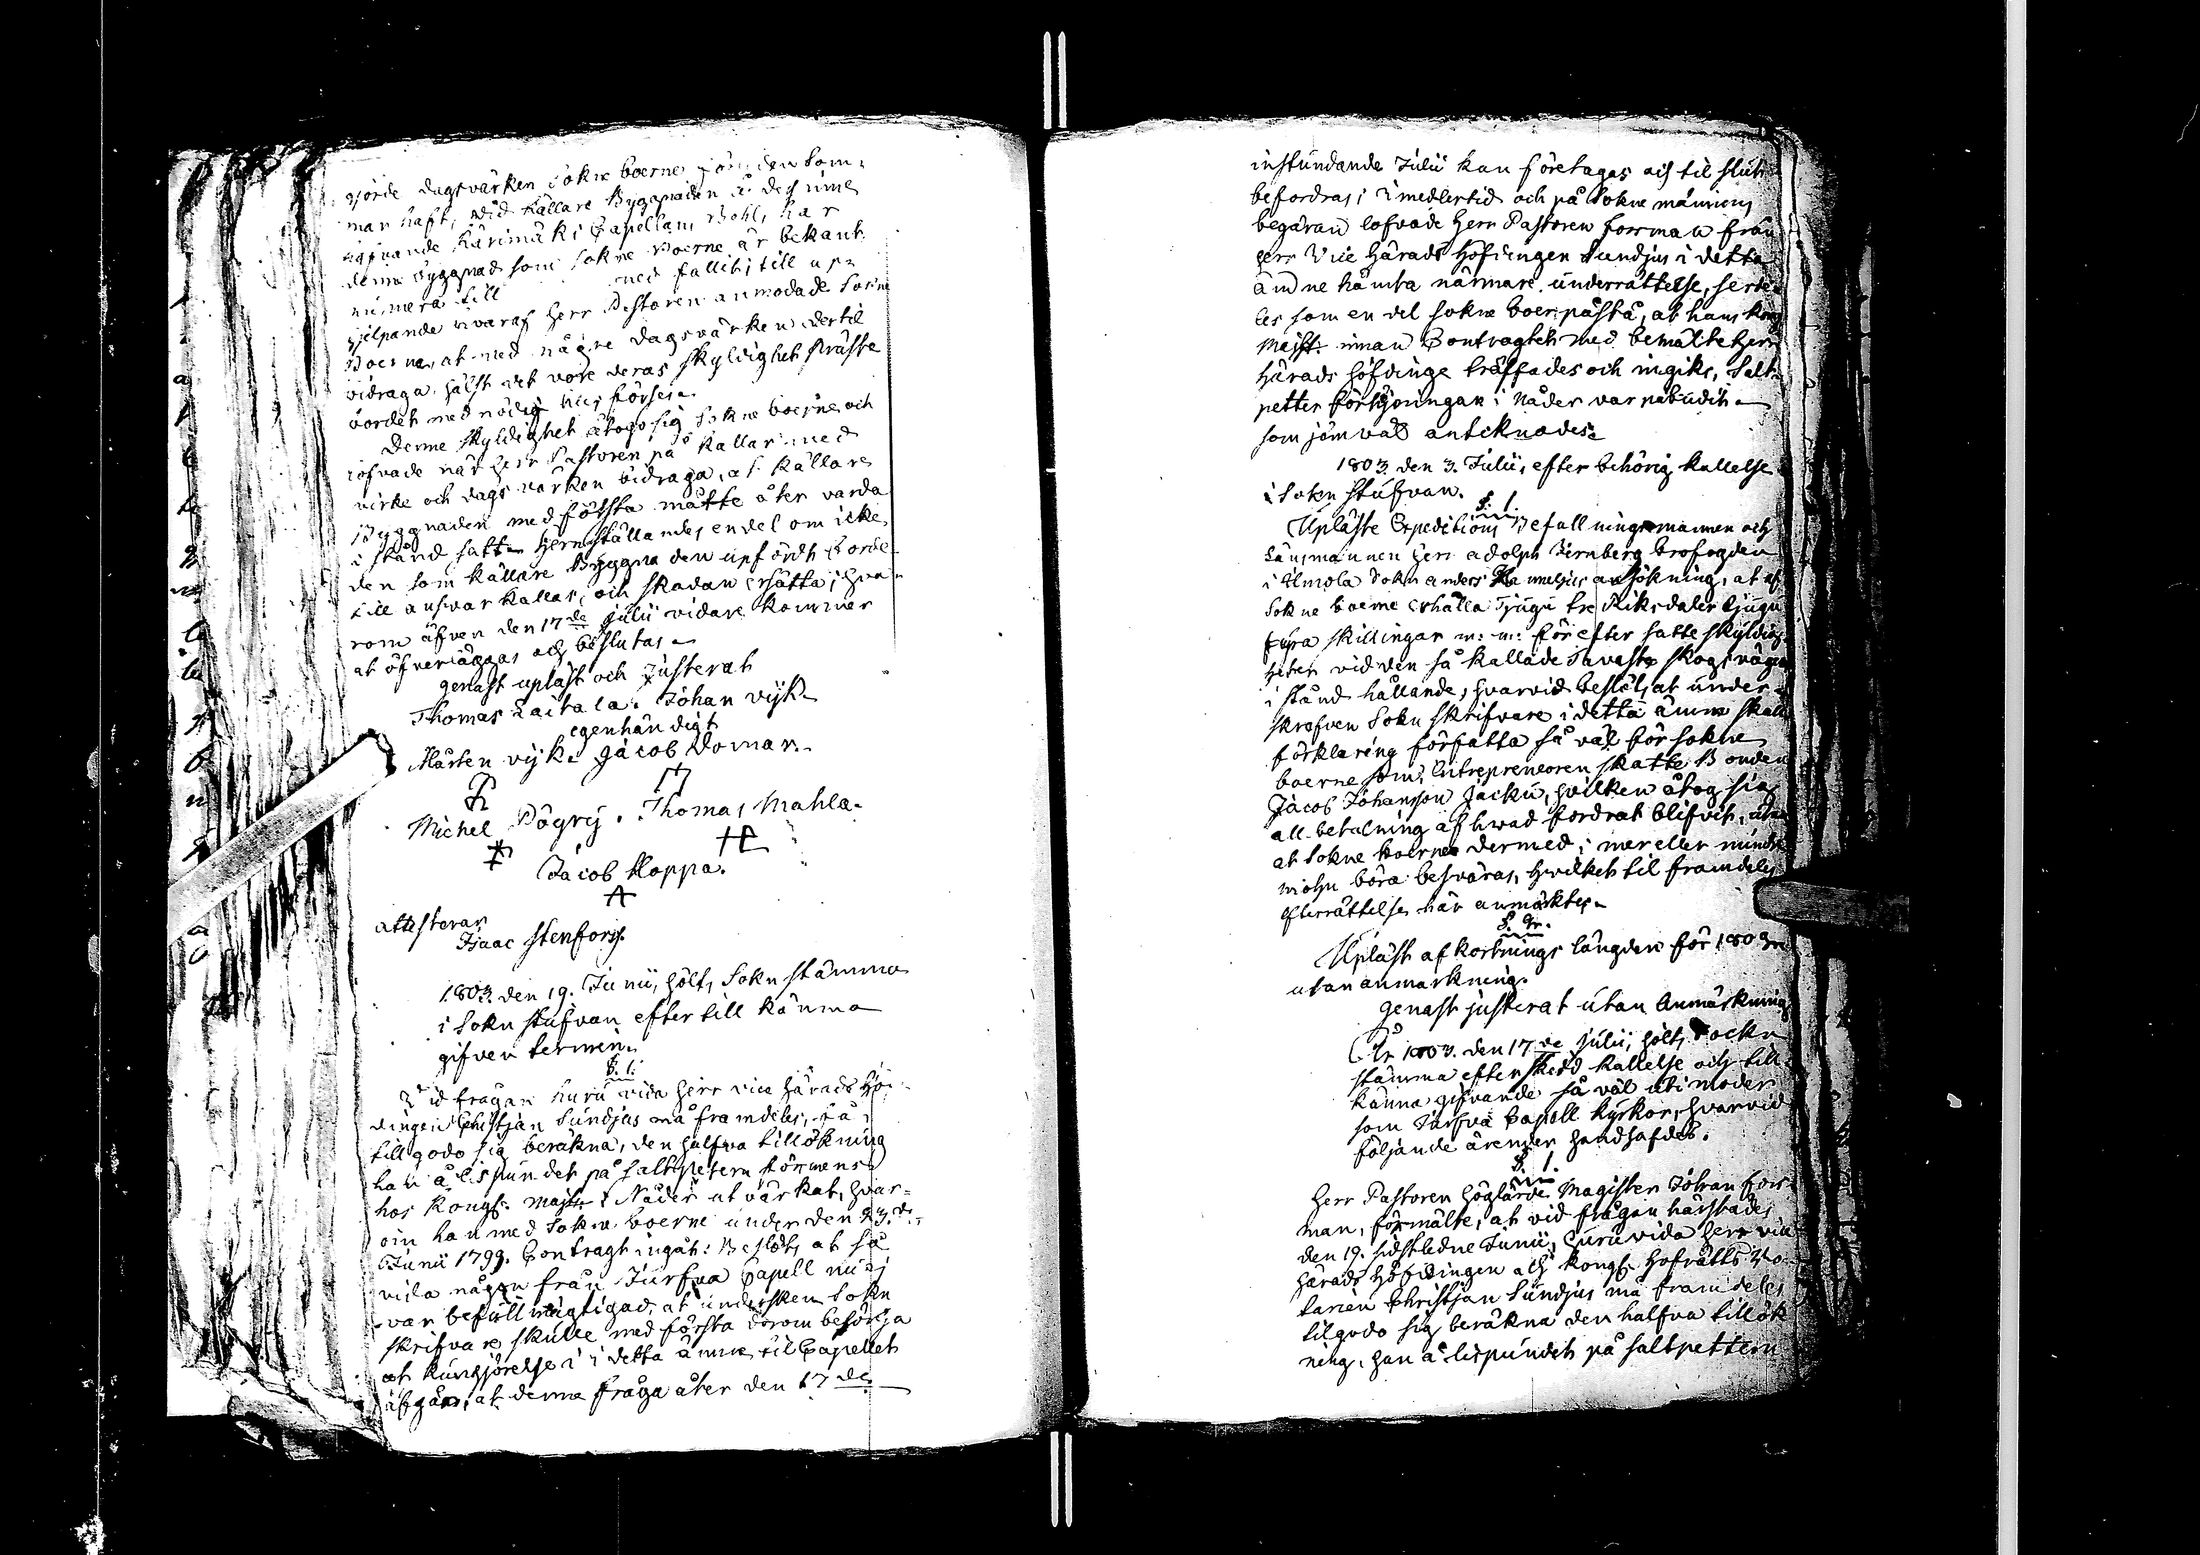 gjorde dagsvärken Sokne boerne förriden Som-
mar haft, vid källare Byggnaden å dess inne
hafvande Kärimäki Capellans Bohl, har
denne Byggnad som Sokne Boerne är bekant
numera till ned fallit; till upp
hjelpande hvaraf Herr Pastoren anmodade Sokne
Boerne, at med någre dagsvärken dertil
bidraga, hälst det vore deras skyldighet Präste
bordet med nödig huus förse.
Denne skyldighet åtogo sig Sokne boerne och
lofvade när Herr Pastoren på kallar med
virke och dags värken bidraga, at källare
Byggnaden med första måtte åter varda
i stånd satt. Hemställandes en del om icke
den som källare Byggnaden upfördt borde
till ansvar kallas, och skadan ersätta; hva-
rom äfven den 17de Julii vidare kommer
at öfverläggas och beslutas.
genast upläst och Justerat
Thomas Laitala. Johan vijk.
egenhändigt
Mårten vijk. Jacob Domar.
Michel Pògrij. Thomas Mahla.
Jacob Hoppa.
attesterar
Isaac Stenfors.
1803. den 19. Junii, hölts Sokn stämma
i Sokn stufvan efter till känna
gifven termin.
§. 1.
Vid frågan huru vida Herr vice Härads Höf-
dingen Christjan Sundjus må framdeles, få
till godo sig beräkna, den halfva tillökning
han å lispundet på saltpetern förmens
hos Kongl. Majst: i Nåder utvärkat, hvar-
om han med Sokne boerne under den 23.de
Junii 1799. Contragt ingåt: Beslöts, at så
vida någon från Jurfva Capell nu ej
var befullmägtigad, at undersken Sokn
skrifvare skulle med första derom besörja
at kungjörelse i detta ämne til Capellet
afgår; at denne fråga åter den 17de
instundande Julii kan företagas och til slut
befordras; Imedlertid och på Sokne männens
begäran lofvade Herr Pastoren Forrman från
Herr Vice Härads Höfdingen Sundjus i detta
ämne hämta närmare underrättelse, serde-
les som en del sokne boer påstå, at hans Kong
Majst. innan Contragtet med bemälte Herr
Härads höfdinge träffades och ingiks, Salt-
petter förhöjningar i Nåder var påbudit.
som jämväl antecknades.
1803. den 3. Julii, efter behörig kallelse
i Sokn stufvan.
§. 1.
Upläste Expeditions Befallningsmannen och
Länsmannen Herr Adolph Jernberg brofogden
i Ilmola Sokn anders ansökning, at af
Sokne boerne erhålla Tjugu tre Riksdaler tjugu
fyra skillingar m: m: för efter satte skyldig-
heter vid den så kallade Tavaste skogs vägen
i stånd hållande, hvarvid beslöts, at under-
skrefven Sokn skrifvare i detta ämne skall
förklaring författa så väl för sokne
boerne som Entrepreneoren skatte Bonden
Jacob Johansson Jacku, hvilken åtog sig
all betalning af hvad fordrat blifvit, utan
at Sokne boerne dermed, i mer eller mindre
mohn böra besväras, hvilket til framdeles
efterrättelse här anmärktes.
§. 2.
Upläst afkortnings längden för 1803
utan anmärkning.
genast justerat utan Anmärkning
År 1803. den 17de Julii, hölts Sockn
stämma efter skedd kallelse och till-
känna gifvande så väl uti moder
som Jurfva Capell kyrkor, hvarvid
följande ärender handhafdes.
§. 1.
Herr Pastoren Höglärde Magister Johan Forr-
man, förmälte, at vid frågan härstädes
den 19. sidstledne Junii, huruvida Herr vice
Härads Höfdingen och Kongl. Hofrätts No-
tarien Christjan Sundjus må framdeles
tilgodo sig beräkna den halfva tillök
ning, han å lispundet på saltpettern